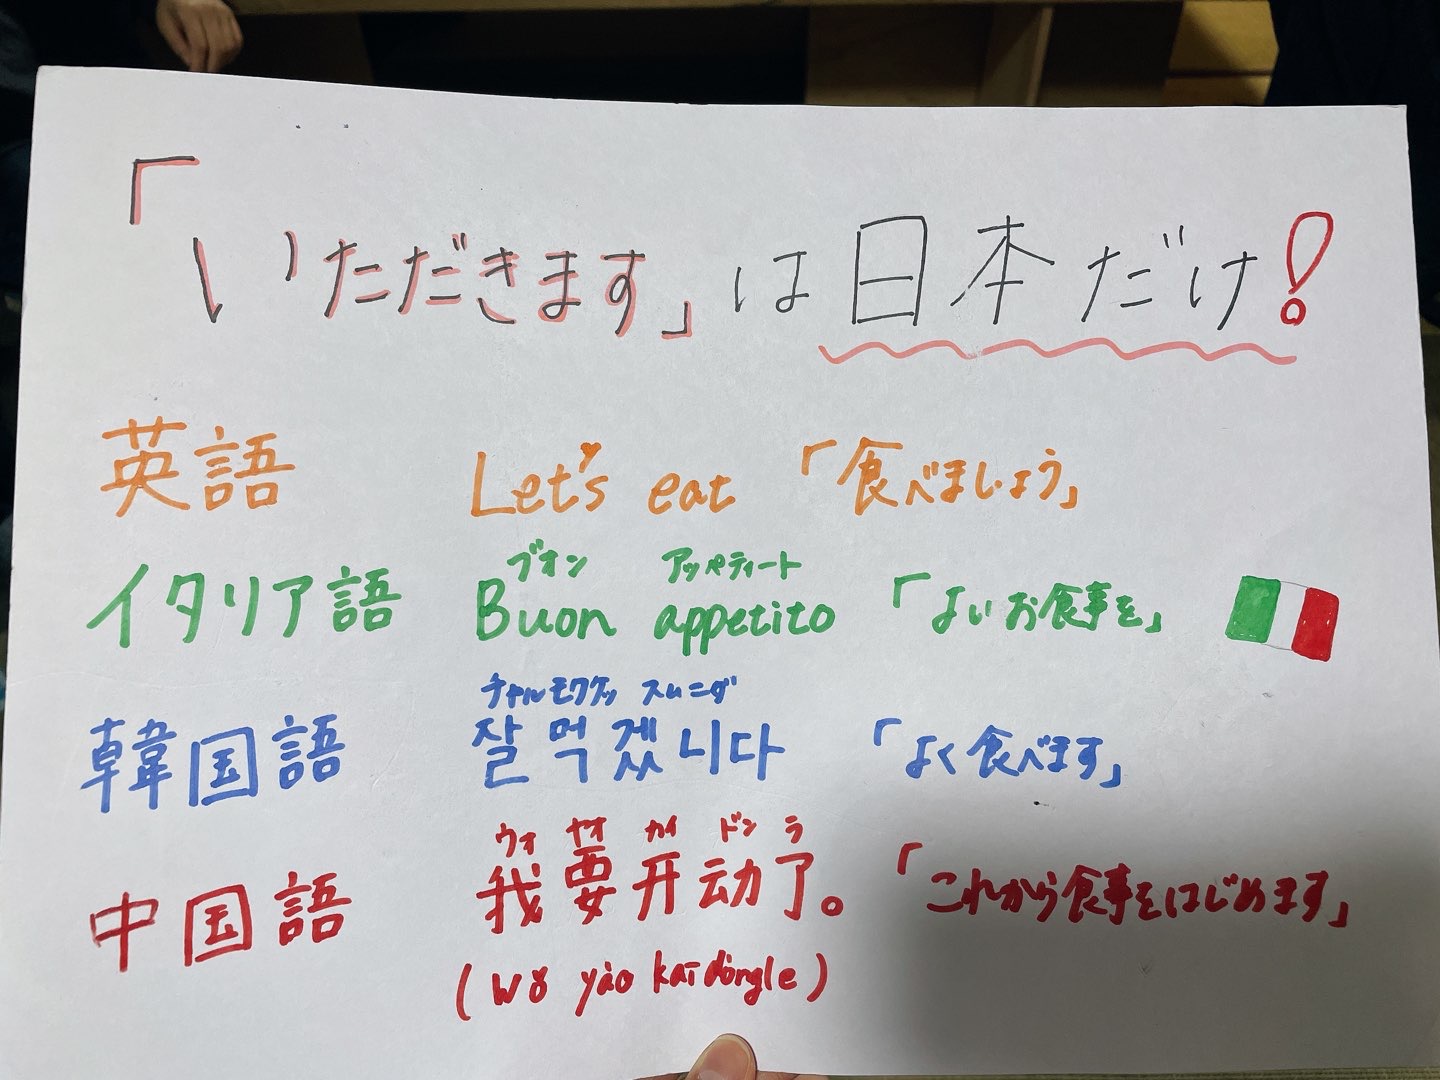 「いただきます」は日本だけ!
英語 Let's eat 「食べましょう」
ブオン アッペティート
イタリア語 Buon appetito 「よいお食事を」
チャルモクケッ スムニダ
韓国語 잘 먹겠니다 「よく食べます」
ウォ ヤオ カイ ドン ラ
中国語 我要开动了。 「これから食事をはじめます」
(wǒ yào kāi dòngle)